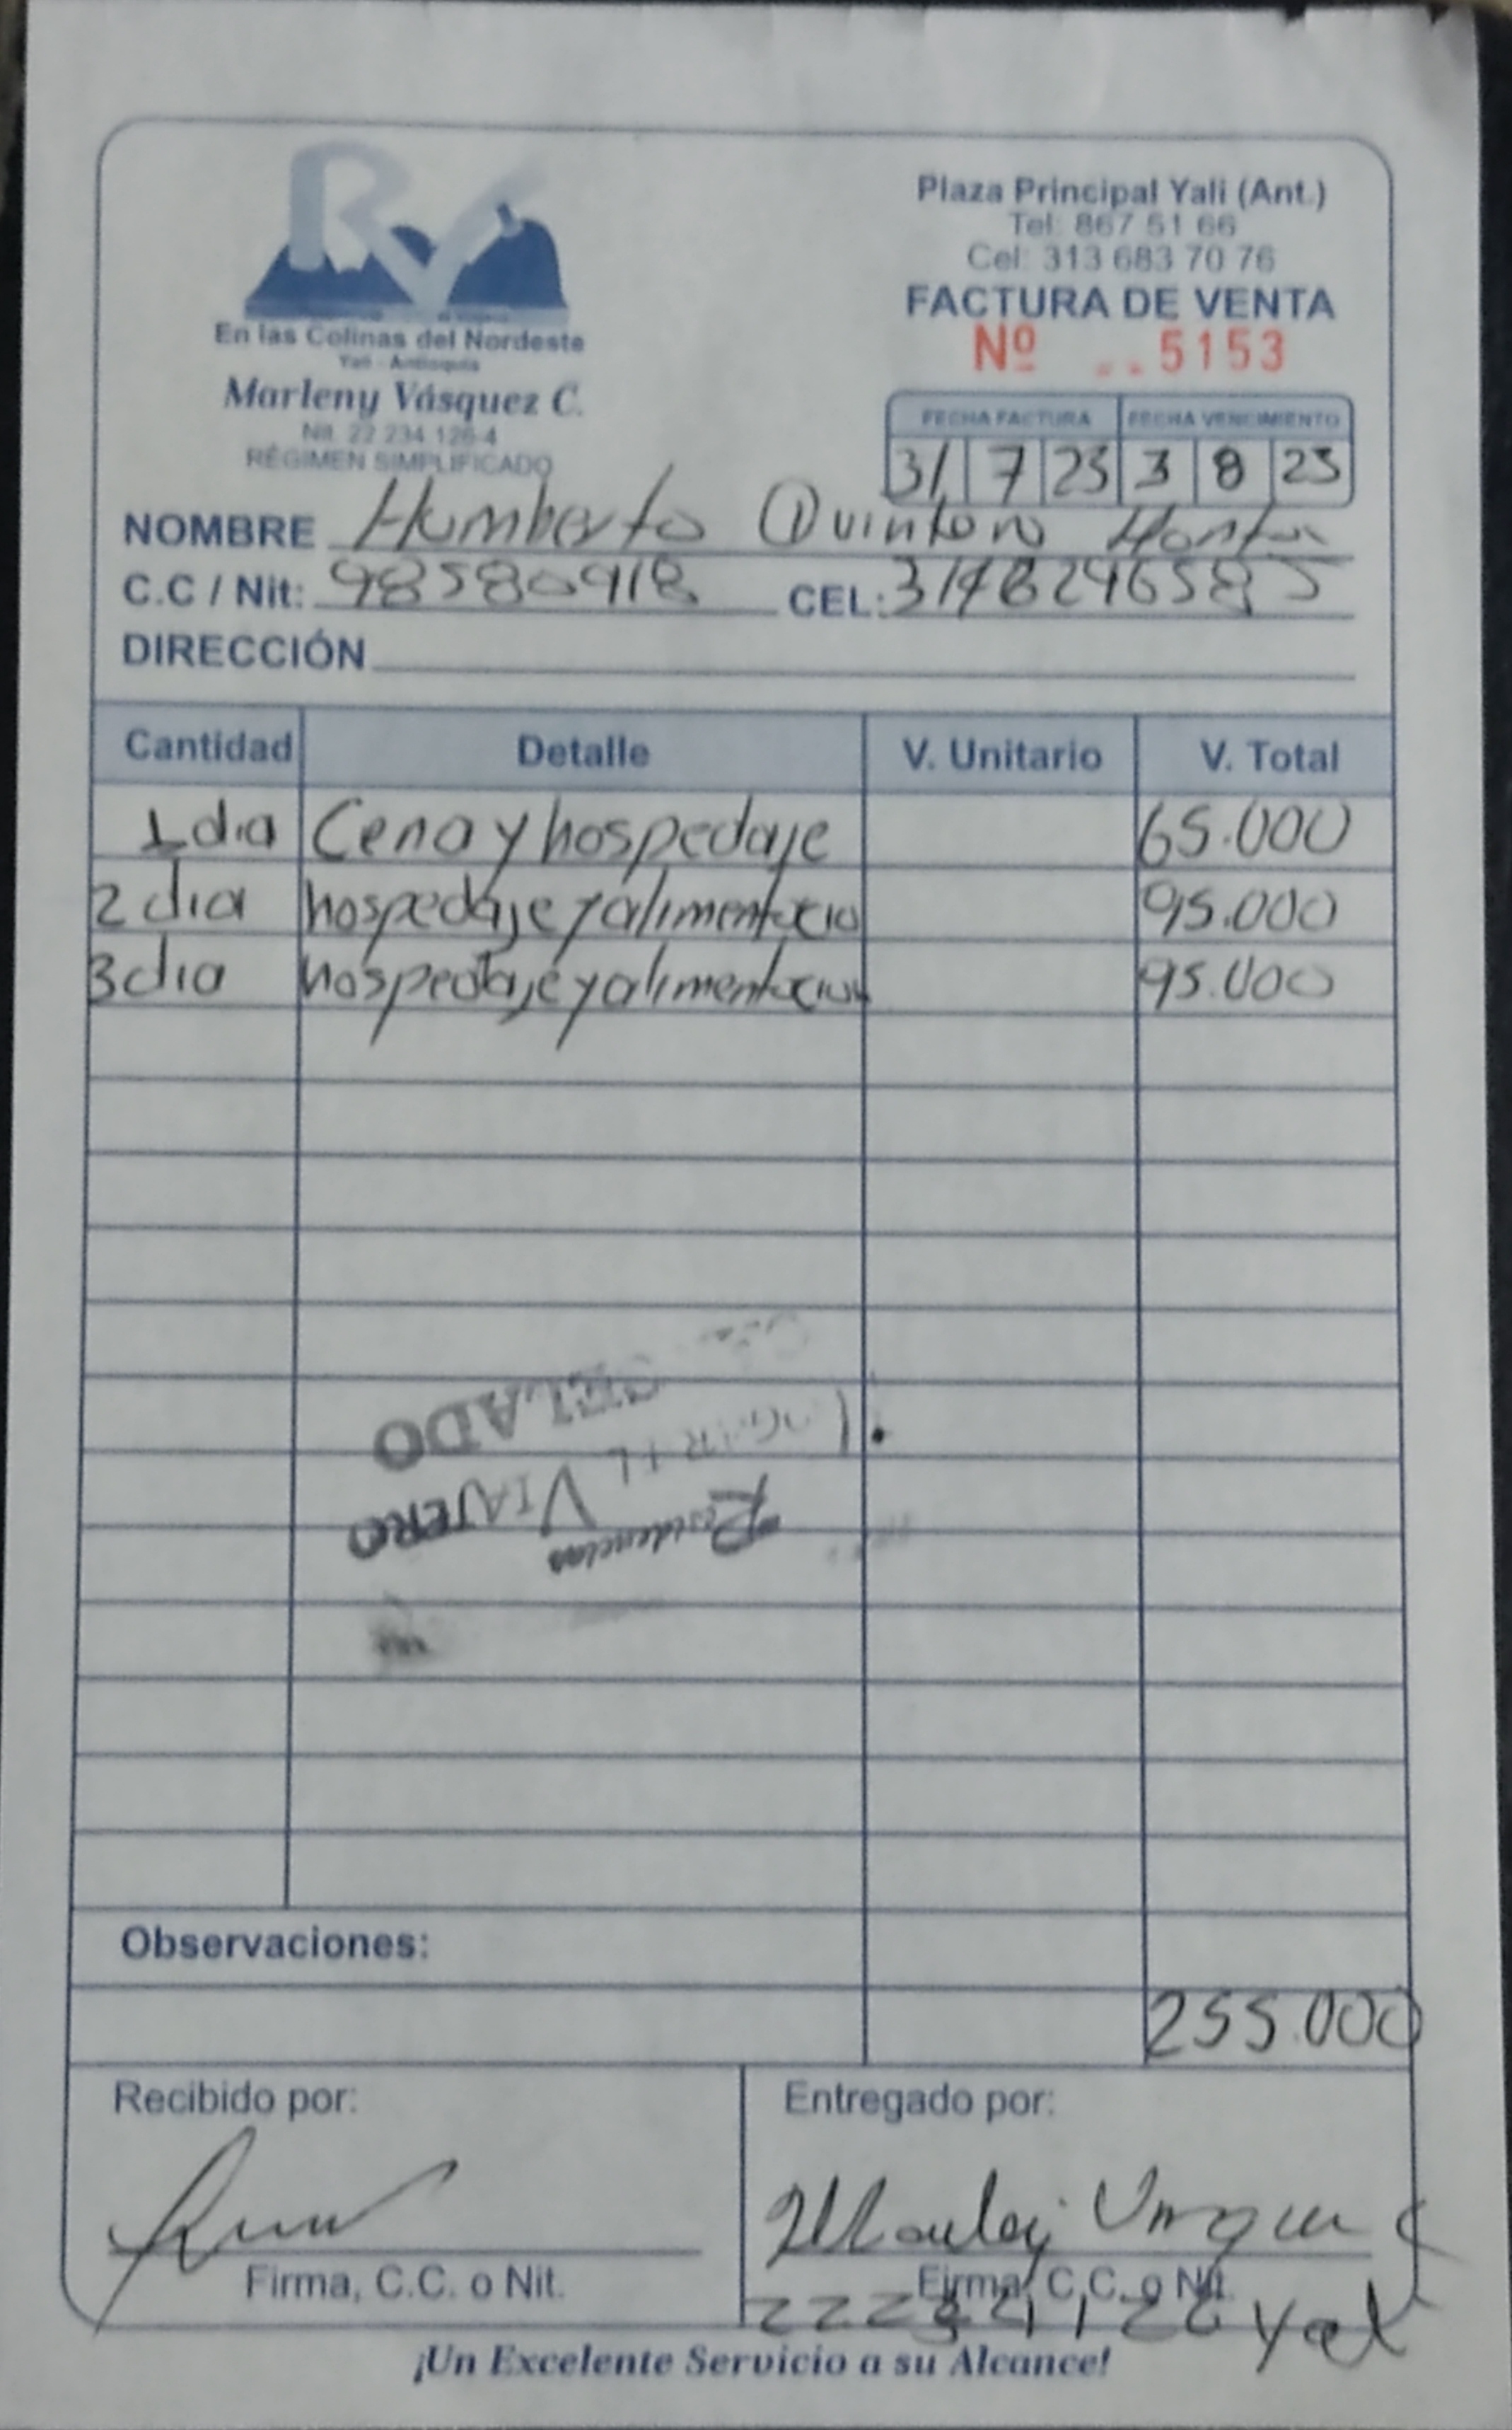 RV
En las Colinas del Nordeste
Yalí - Antioquia
Marleny Vásquez C.
Nit. 22.234.126-4
RÉGIMEN SIMPLIFICADO
Plaza Principal Yali (Ant.)
Tel: 867 51 66
Cel: 313 683 70 76
FACTURA DE VENTA
Nº 5153
FECHA FACTURA FECHA VENCIMIENTO
31 7 23 3 8 23
NOMBRE Humberto Quintero
C.C / Nit: 98580918 CEL:
DIRECCIÓN
Cantidad Detalle V. Unitario V. Total
1 dia Cena y hospedaje 65.000
2 dia hospedaje y alimentacio 95.000
3 dia hospedaje y alimentacion 95.000
CELADO
Residencias
VIAJERO
Observaciones:
255.000
Recibido por: Entregado por:
Firma, C.C. o Nit. Firma, C.C. o Nit.
22234126 Yal
¡Un Excelente Servicio a su Alcance!